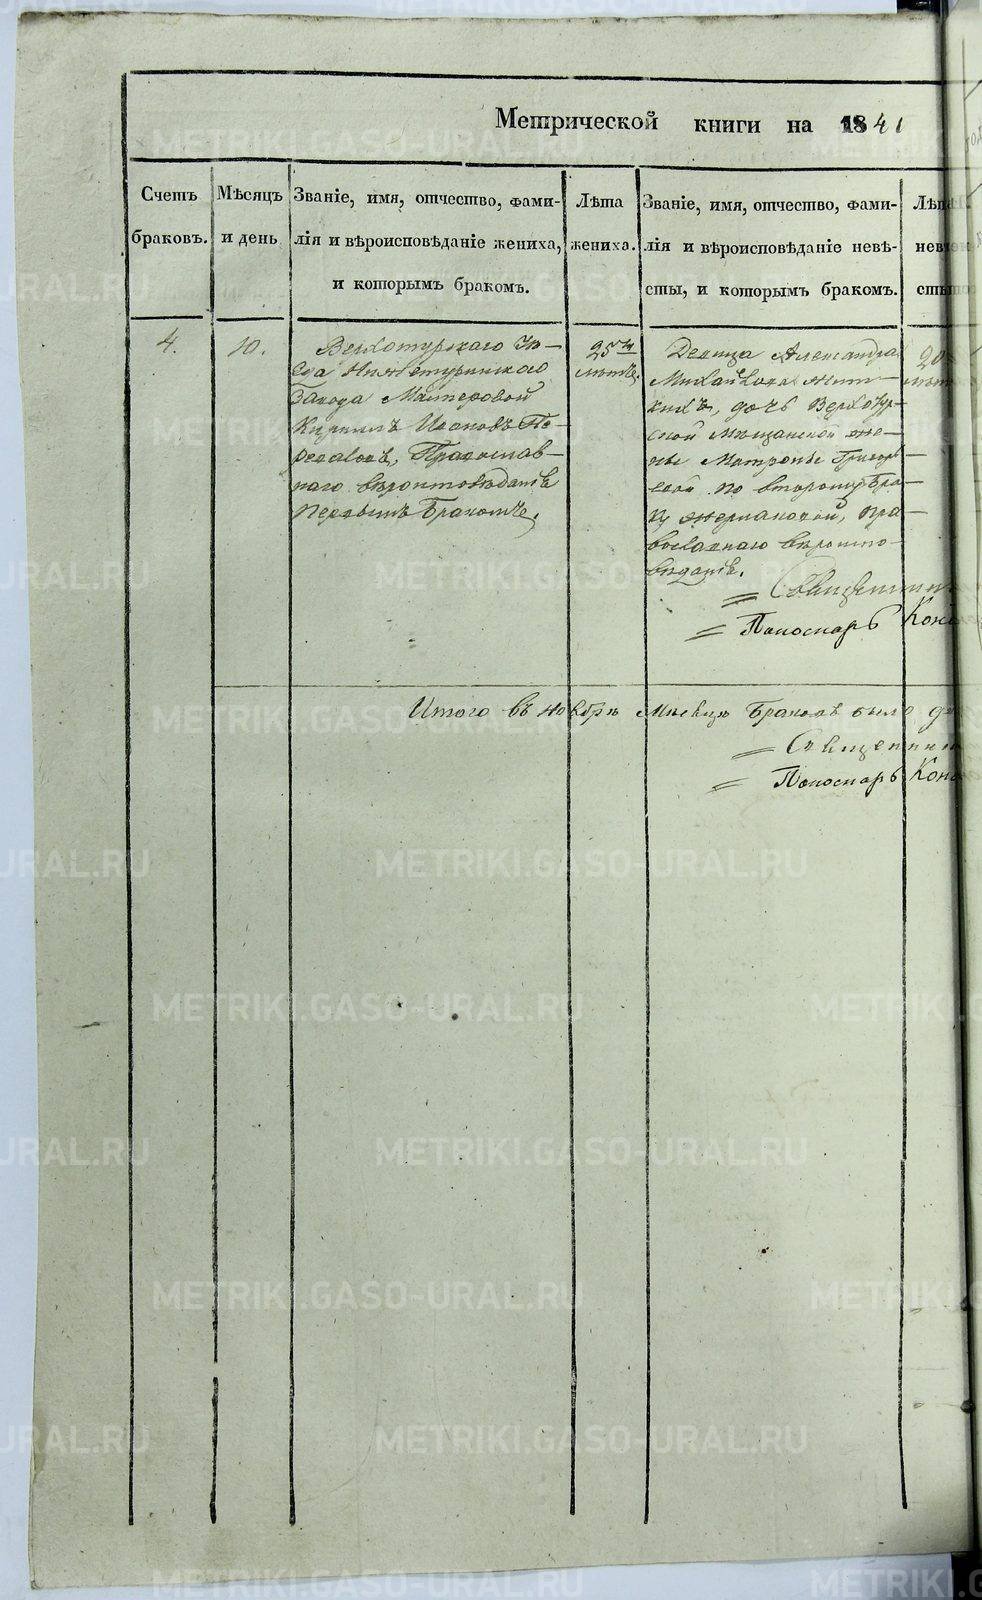 Метрической книги на 1841
Счетъ браковъ.
Мѣсяцъ и день
Званіе, имя, отчество, фами-
лія и вѣроисповѣданіе жениха,
и которымъ бракомъ.
Лѣта
жениха.
Званіе, имя, отчество, фами-
лія и вѣроисповѣданіе невѣ-
сты, и которымъ бракомъ.
4.
10.
Верхотурскаго Уѣ-
Нижнетуринскаго
Завода Мастеровой
Кириллъ Ивановъ
Православ-
наго вѣроисповѣданія
Первымъ Бракомъ.
25ти
лѣтъ.
Девица Александра
Михайлова
дочь Верхотур-
ской Мещанской же-
ны Матроны Григорь-
евой по второму Бра-
ку Пра-
вославнаго вѣроиспо-
веданія.
= Священник
= Пономарь
Итого въ ноябрѣ Мѣсяцѣ Браковъ было
= Священник
= Пономарь
METRIKI.GASO-URAL.RU